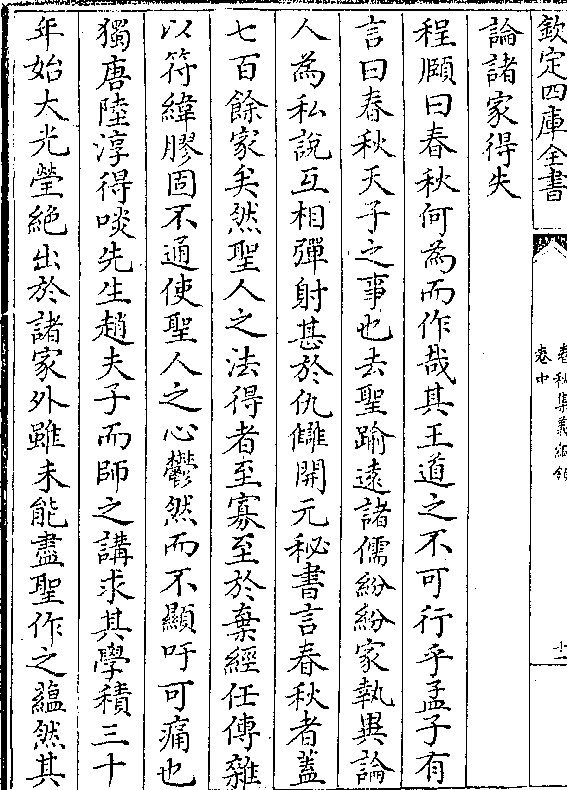 欽定四庫全書
春秋集義綱領
卷中
十一
論諸家得失
程頤曰春秋何為而作哉其王道之不可行乎孟子有
言曰春秋天子之事也去聖踰遠諸儒紛紛家執異論
人為私說互相彈射甚於仇讎開元秘書言春秋者蓋
七百餘家矣然聖人之法得者至寡至於棄經任傳雜
以符緯膠固不通使聖人之心鬱然而不顯吁可痛也
獨唐陸淳得啖先生趙夫子而師之講求其學積三十
年始大光瑩絶出於諸家外雖未能盡聖作之蘊然其